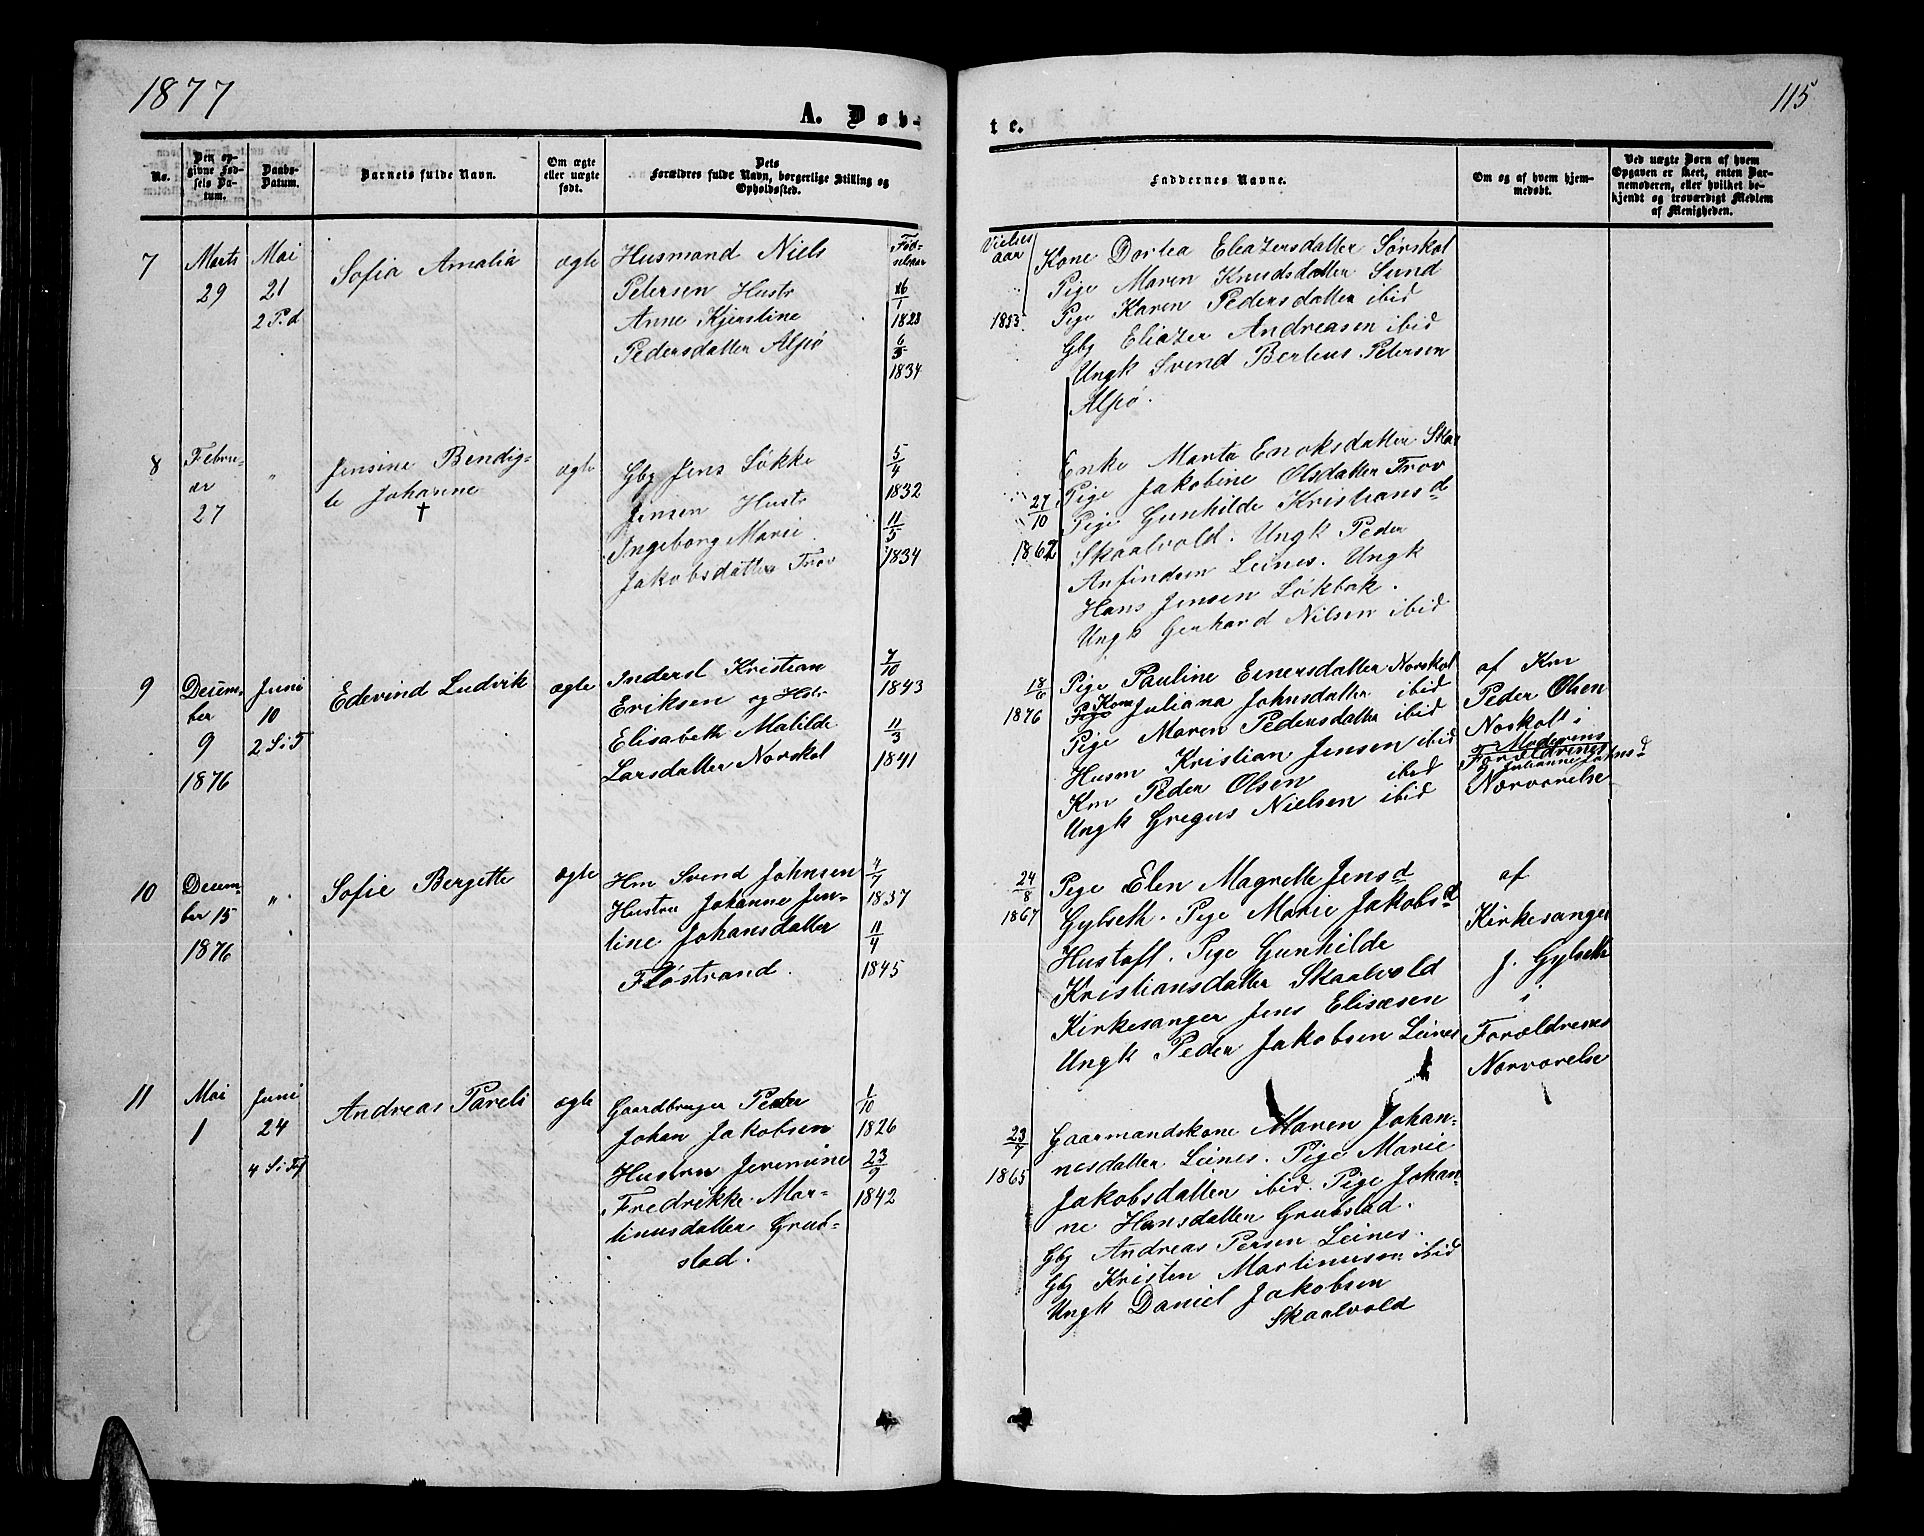 1877
115
A. Døb-
te.
No.
Den op-
givne Fød-
sels Da-
tum.
Daabs-
Datum.
Barnets fulde Navn.
Om ægte
eller uægte
født.
Dets
Forældres fulde Navn, borgerlige Stilling og
Opholdssted.
Faddernes Navne.
Om og af hvem hjem-
medøbt.
Ved uægte Børn af hvem
Opgaven er skeet, enten Bar-
nemoderen, eller hvilket be-
kjendt og troværdigt Medlem
af Menigheden.
7
Marts
29
Mai
21
2 P.d
Sofia Amalia
ægte
Husmand Niels
Petersen Hustr
Anne Kjerstine
Pedersdatter Alsø
Fød-
selsaar
16/1
1828
6/3
1834
Vielses
aar
1853
Kone Dortea Eleazersdatter Sørskot
Pige Maren Knudsdatter Sund
Pige Karen Pedersdatter ibid
Gbg Eliazer Andreasen ibid
Ungk Svend Berteus Petersen
Alsø.
8
Febru-
ar
27
"
Jensine Bendig-
te Johanne
†
ægte
Gbg Jens Løkke
Jensen Hustr
Ingeborg Marie
Jakobsdatter Trov
5/4
1832
11/5
1834
27/10
1862
Enke Marta Enoksdatter
Pige Jakobine Olsdatter Trov
Pige Gunhilde Kristiansd
Skaalvold. Ungk Peder
Anfindsen Leines. Ungk
Hans Jensen Løkbak.
Ungk Gerhard Nilsen ibid
9
Decem-
ber
9
1876
Juni
10
2 S i 5
Edevind Ludvik
ægte
Inderst Kristian
Eriksen og Hstr
Elisabeth Matilde
Larsdatter Norskot
7/10
1843
11/3
1841
18/6
1876
Pige Pauline Eenersdatter Norskot
Kone
Pige Juliana Johnsdatter ibid
Pige Maren Pedersdatter ibid
Husm Kristian Jensen ibid
Km Peder Olsen ibid
Ungk Gregus Nielsen ibid
af Km
Peder Olsen
Noskott i
Moderens
Forældrenes
Julianne Johnsd
Nærværelse
10
Decem-
ber 15
1876
"
Sofie Bergette
ægte
Hm Svend Johnsen
Hustru Johanne Jen-
tine Johansdatter
Fløstrand.
4/7
1837
11/4
1845
24/8
1867
Pige Elen Magrette Jensd
Gylseth. Pige Marie Jakobsd
Hustoft. Pige Gunhilde
Kristiansdatter Skaalvold
Kirkesanger Jens Elisæsen
Ungk Peder Jakobsen Leines
af
Kirkesanger
J. Gylseth
i
Forældrenes
Nærværelse
11
Mai
1
Juni
24
4 S i Tf
Andreas Pareli
ægte
Gaardbruger Peder
Johan Jakobsen
Hustru Jeremine
Fredrikke Mar-
tinusdatter Grub-
stad.
1/10
1826
23/9
1842
23/7
1865
Gaarmandskone Maren Johan-
nesdatter Leines. Pige Marie
Jakobsdatter ibid. Pige Johan-
ne Hansdatter Grubstad.
Gbg Andreas Persen Leines.
Gbg Kristen Martinusen ibid
Ungk Daniel Jakobsen
Skaalvold